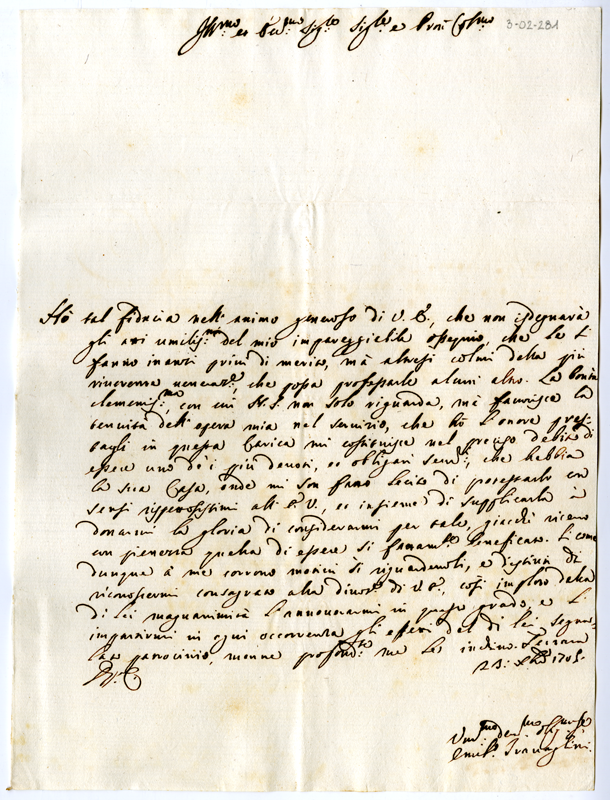 Ill.mo et Ecc.mo Sig.re Sig.re e Pron Col.mo
3-02-281
Hò tal fiducia nell' animo generoso di V. E., che non isdegnarà
gli atti umiliss.mi del mio impareggiabile ossequio, che se Le
fanno inanti privi di merito, mà altresì colmi della più
riverente veneraz.e, che possa professarle alcuni altro. La bontà
clementiss.ma, con cui N. S. non solo riguarda, mà favorisce la
tenuità dell' opera mia nel servizio, che hò l'onore pres-
targli in questa Carica mi costituisce nel preciso debito di
essere uno de i più devoti, et obligati serv.i, che habbia
la sua Casa, onde mi son fatto lecito di protestarlo con
sensi rispettosissimi all' E. V., et insieme di supplicarla à
donarmi la gloria di considerarmi per tale, giacchè vicano
con pienezza quella di essere sì beneficato. Si come
dunque à me corrono motivi di riguardevoli, e distinti di
riconoscermi consagrato alla divoz.e di V. E., così imploro dalla
di Lei magnanimità l'annoverarmi in questo grado, e
impartirmi in ogni occorrenza gli effetti del di lei segna-
lato patrocinio, mentre profond.te me Le inchino.
23: Xbre 1705.
Um.mo Dev.mo